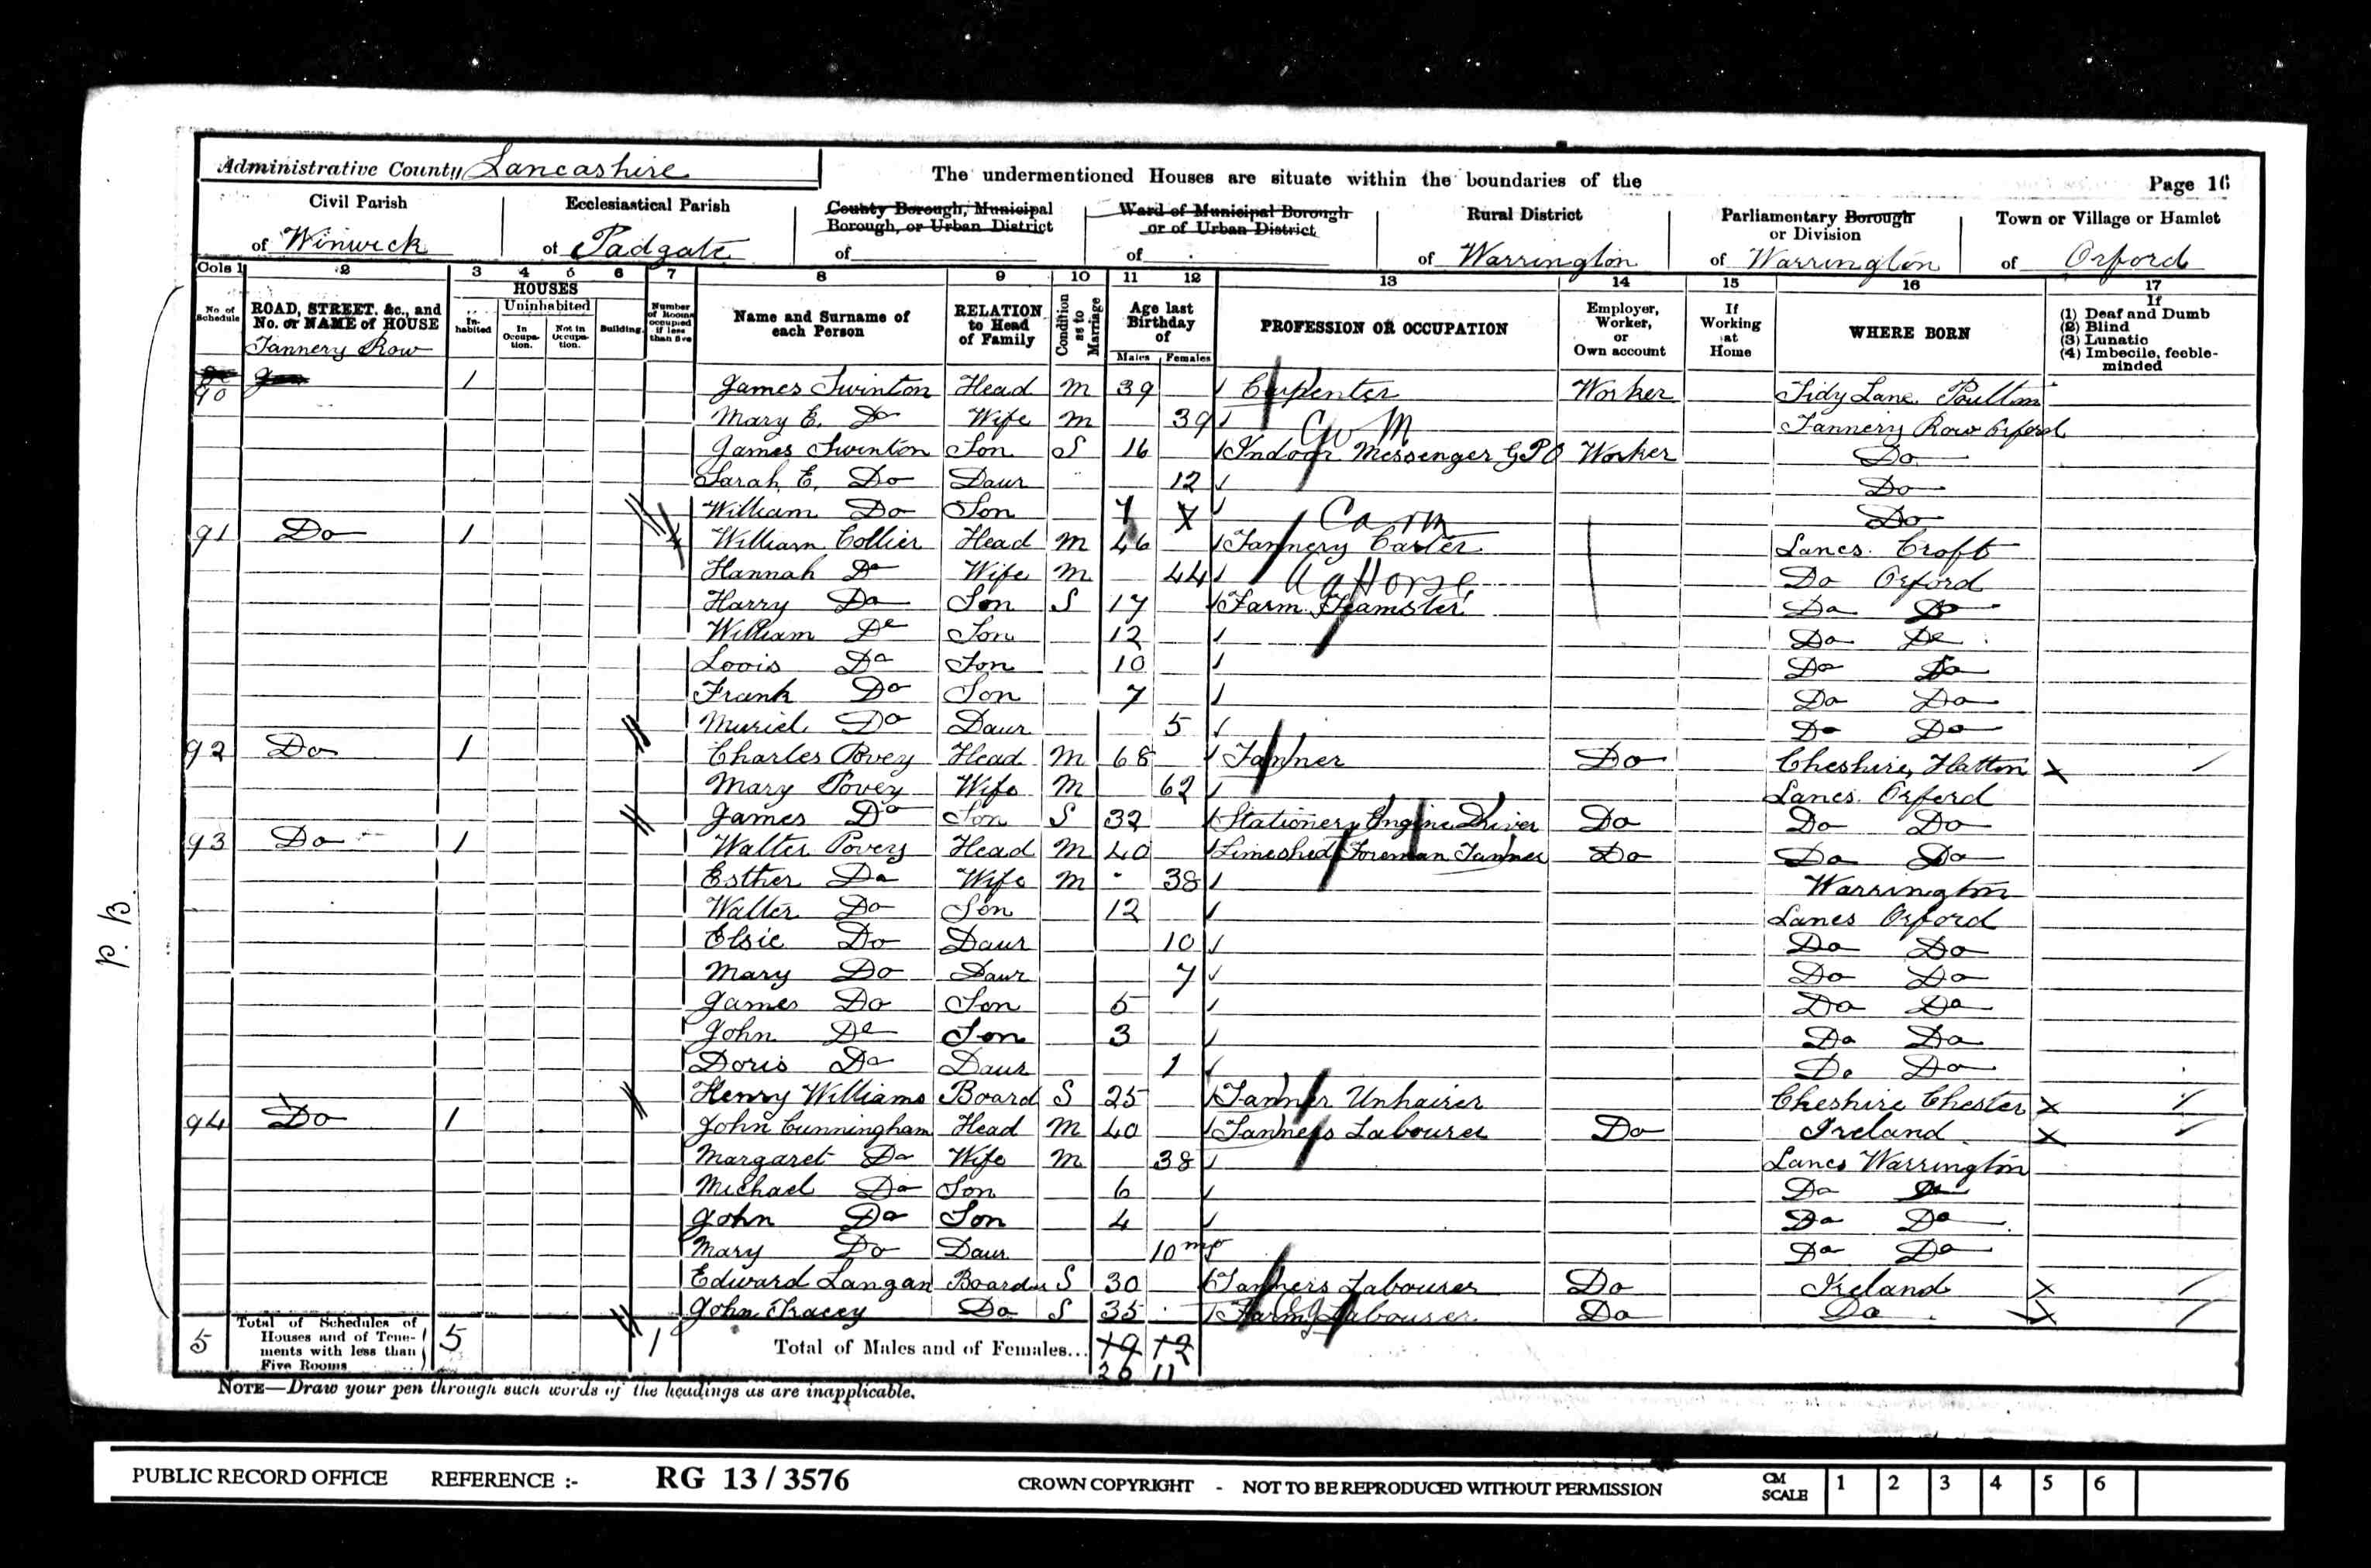 Administrative County Lancashire
The undermentioned Houses are situate within the boundaries of the
Page 16
Civil Parish of Winwick
Ecclesiastical Parish of Padgate
County Borough, Municipal Borough, or Urban District of
Ward of Municipal Borough or of Urban District of
Rural District of Warrington
Parliamentary Borough or Division of Warrington
Town or Village or Hamlet of Orford
Cols 1 2 3 4 5 6 7 8 9 10 11 12 13 14 15 16 17
No. of Schedule
ROAD, STREET, &c., and No. or NAME of HOUSE
Tannery Row
HOUSES
In-habited
Uninhabited
In Occupa-tion.
Not in Occupa-tion.
Building.
Number of Rooms occupied if less than five
Name and Surname of each Person
RELATION to Head of Family
Condition as to Marriage
Age last Birthday of
Males Females
PROFESSION OR OCCUPATION
Employer, Worker, or Own account
If Working at Home
WHERE BORN
If
(1) Deaf and Dumb
(2) Blind
(3) Lunatic
(4) Imbecile, feeble-minded
90 1 James Swinton Head M 39 Carpenter Worker Tidy Lane Poulton
Mary E. Do Wife M 39 Tannery Row Orford
James Swinton Son S 16 Indoor Messenger GPO Worker Do
Sarah E. Do Daur 12 Do
William Do Son 7 Do
91 Do 1 4 William Collier Head M 46 Tannery Carter Lancs. Croft
Hannah Do Wife M 44 Do Orford
Harry Do Son S 17 Farm Teamster Do Do
William Do Son 12 Do Do
Lovis Do Son 10 Do Do
Frank Do Son 7 Do Do
Muriel Do Daur 5 Do Do
92 Do 1 Charles Povey Head M 68 Tanner Do Cheshire, Hatton X
Mary Povey Wife M 62 Lancs. Orford
James Do Son S 32 Stationery Engine Driver Do Do Do
93 Do 1 Walter Povey Head M 40 Limeshed Foreman Tanner Do Do Do
Esther Do Wife M 38 Warrington
Walter Do Son 12 Lancs Orford
Elsie Do Daur 10 Do Do
Mary Do Daur 7 Do Do
James Do Son 5 Do Do
John Do Son 3 Do Do
Doris Do Daur 1 Do Do
Henry Williams Board S 25 Tanner Unhairer Cheshire Chester X
94 Do 1 John Cunningham Head M 40 Tanners Labourer Do Ireland X
Margaret Do Wife M 38 Lancs Warrington
Michael Do Son 6 Do Do
John Do Son 4 Do Do
Mary Do Daur 10 mo Do Do
Edward Langan Boarder S 30 Tanners Labourer Do Ireland X
John Tracey Do S 35 Farm Labourer Do Do X
5 Total of Schedules of Houses and of Tene-ments with less than Five Rooms 5 1 Total of Males and of Females... 19 12
20 11
NOTE—Draw your pen through such words of the headings as are inapplicable.
PUBLIC RECORD OFFICE REFERENCE :- RG 13 / 3576 CROWN COPYRIGHT - NOT TO BE REPRODUCED WITHOUT PERMISSION CM SCALE 1 2 3 4 5 6